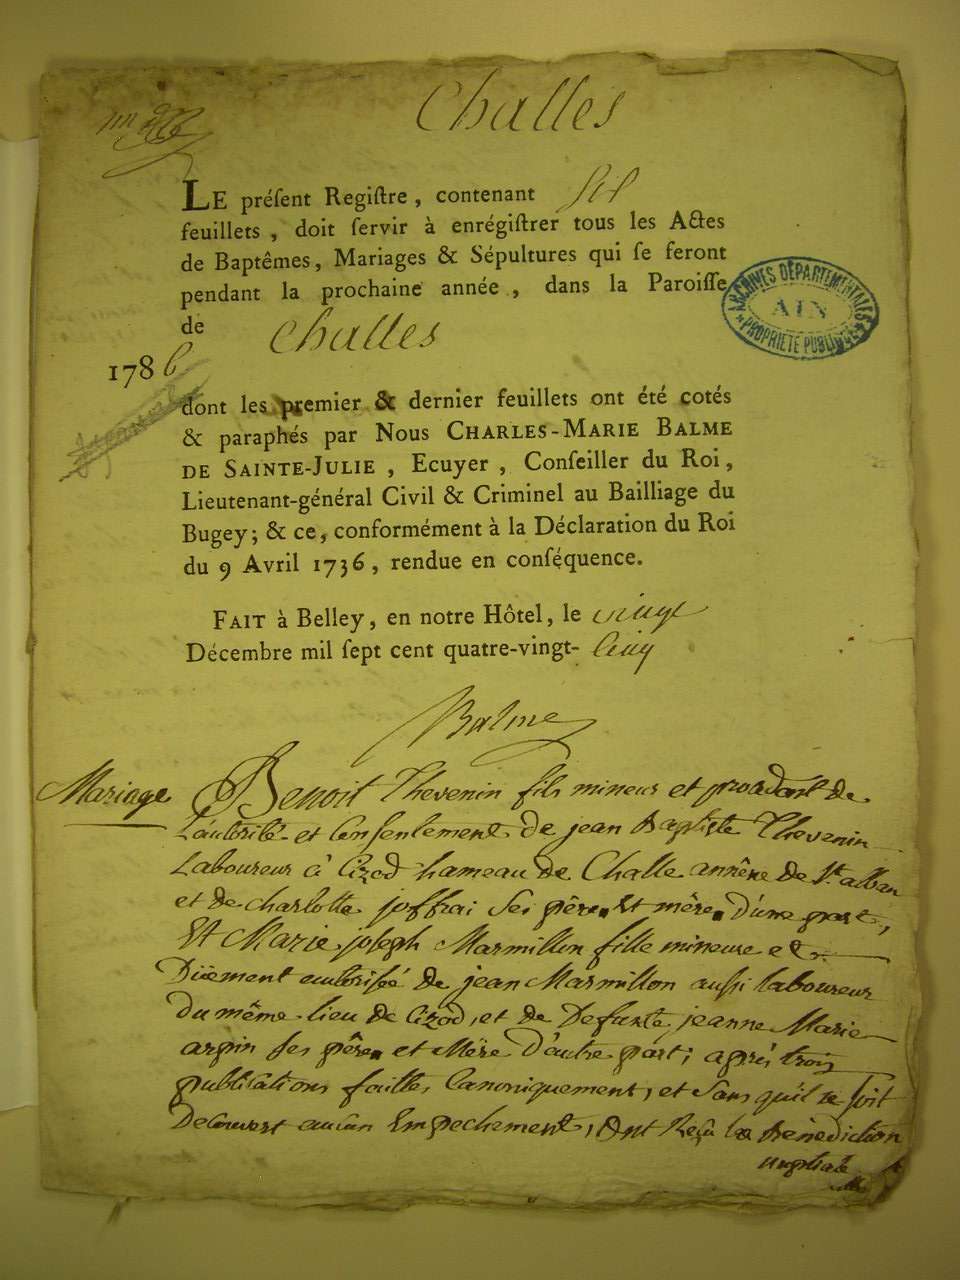 Challes
LE préſent Regiſtre, contenant six
feuillets, doit ſervir à enrégiſtrer tous les Actes
de Baptêmes, Mariages & Sépultures qui ſe feront
pendant la prochaine année, dans la Paroiſſe
de Challes
ARCHIVES DÉPARTEMENTALES
AIN
PROPRIÉTÉ PUBLIQUE
1786
dont les premier & dernier feuillets ont été cotés
& paraphés par Nous CHARLES-MARIE BALME
DE SAINTE-JULIE, Ecuyer, Conſeiller du Roi,
Lieutenant-général Civil & Criminel au Bailliage du
Bugey; & ce, conformément à la Déclaration du Roi
du 9 Avril 1736, rendue en conſéquence.
FAIT à Belley, en notre Hôtel, le vingt
Décembre mil ſept cent quatre-vingt-cinq
Balme
Mariage Benoit Thevenin fils mineur et de
L'autorité et Consentement de jean Baptiste Thevenin
Laboureur à Cizod hameau de Challe annêxe de St. alban
et de charlotte joffrai ses père et mère d'une part,
Et Marie joseph Marmillon fille mineure et
Düement autorisée de jean Marmillon aussi laboureur
Du même lieu de Cizod, et de Defunte jeanne Marie
arpin ses père et Mère D'autre part; après trois
publications faittes Canoniquement, et sans qu'il se soit
Decouvert aucun Empechement, Ont Reçu la Bénédiction
nuptiale